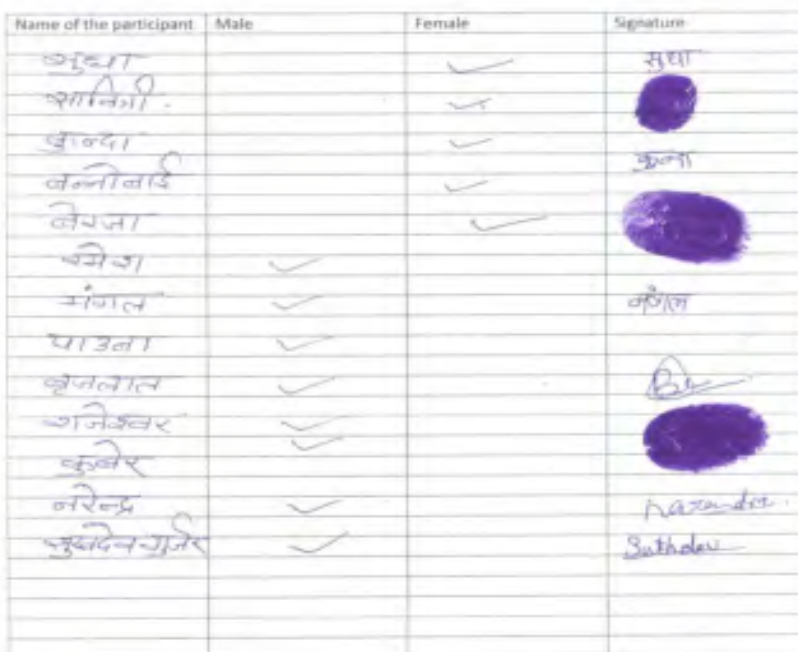 Name of the participant Male Female Signature
सुधा ✓ सुधा
सावित्री. ✓
कुन्दा ✓
बन्नोबाई ✓
✓
रमेश ✓
मंगल ✓ मंगल
✓
बृजलाल ✓
राजेश्वर ✓
कुबेर ✓
नरेन्द्र ✓ Narendra.
सुखदेव गुर्जर ✓ Sukhdev